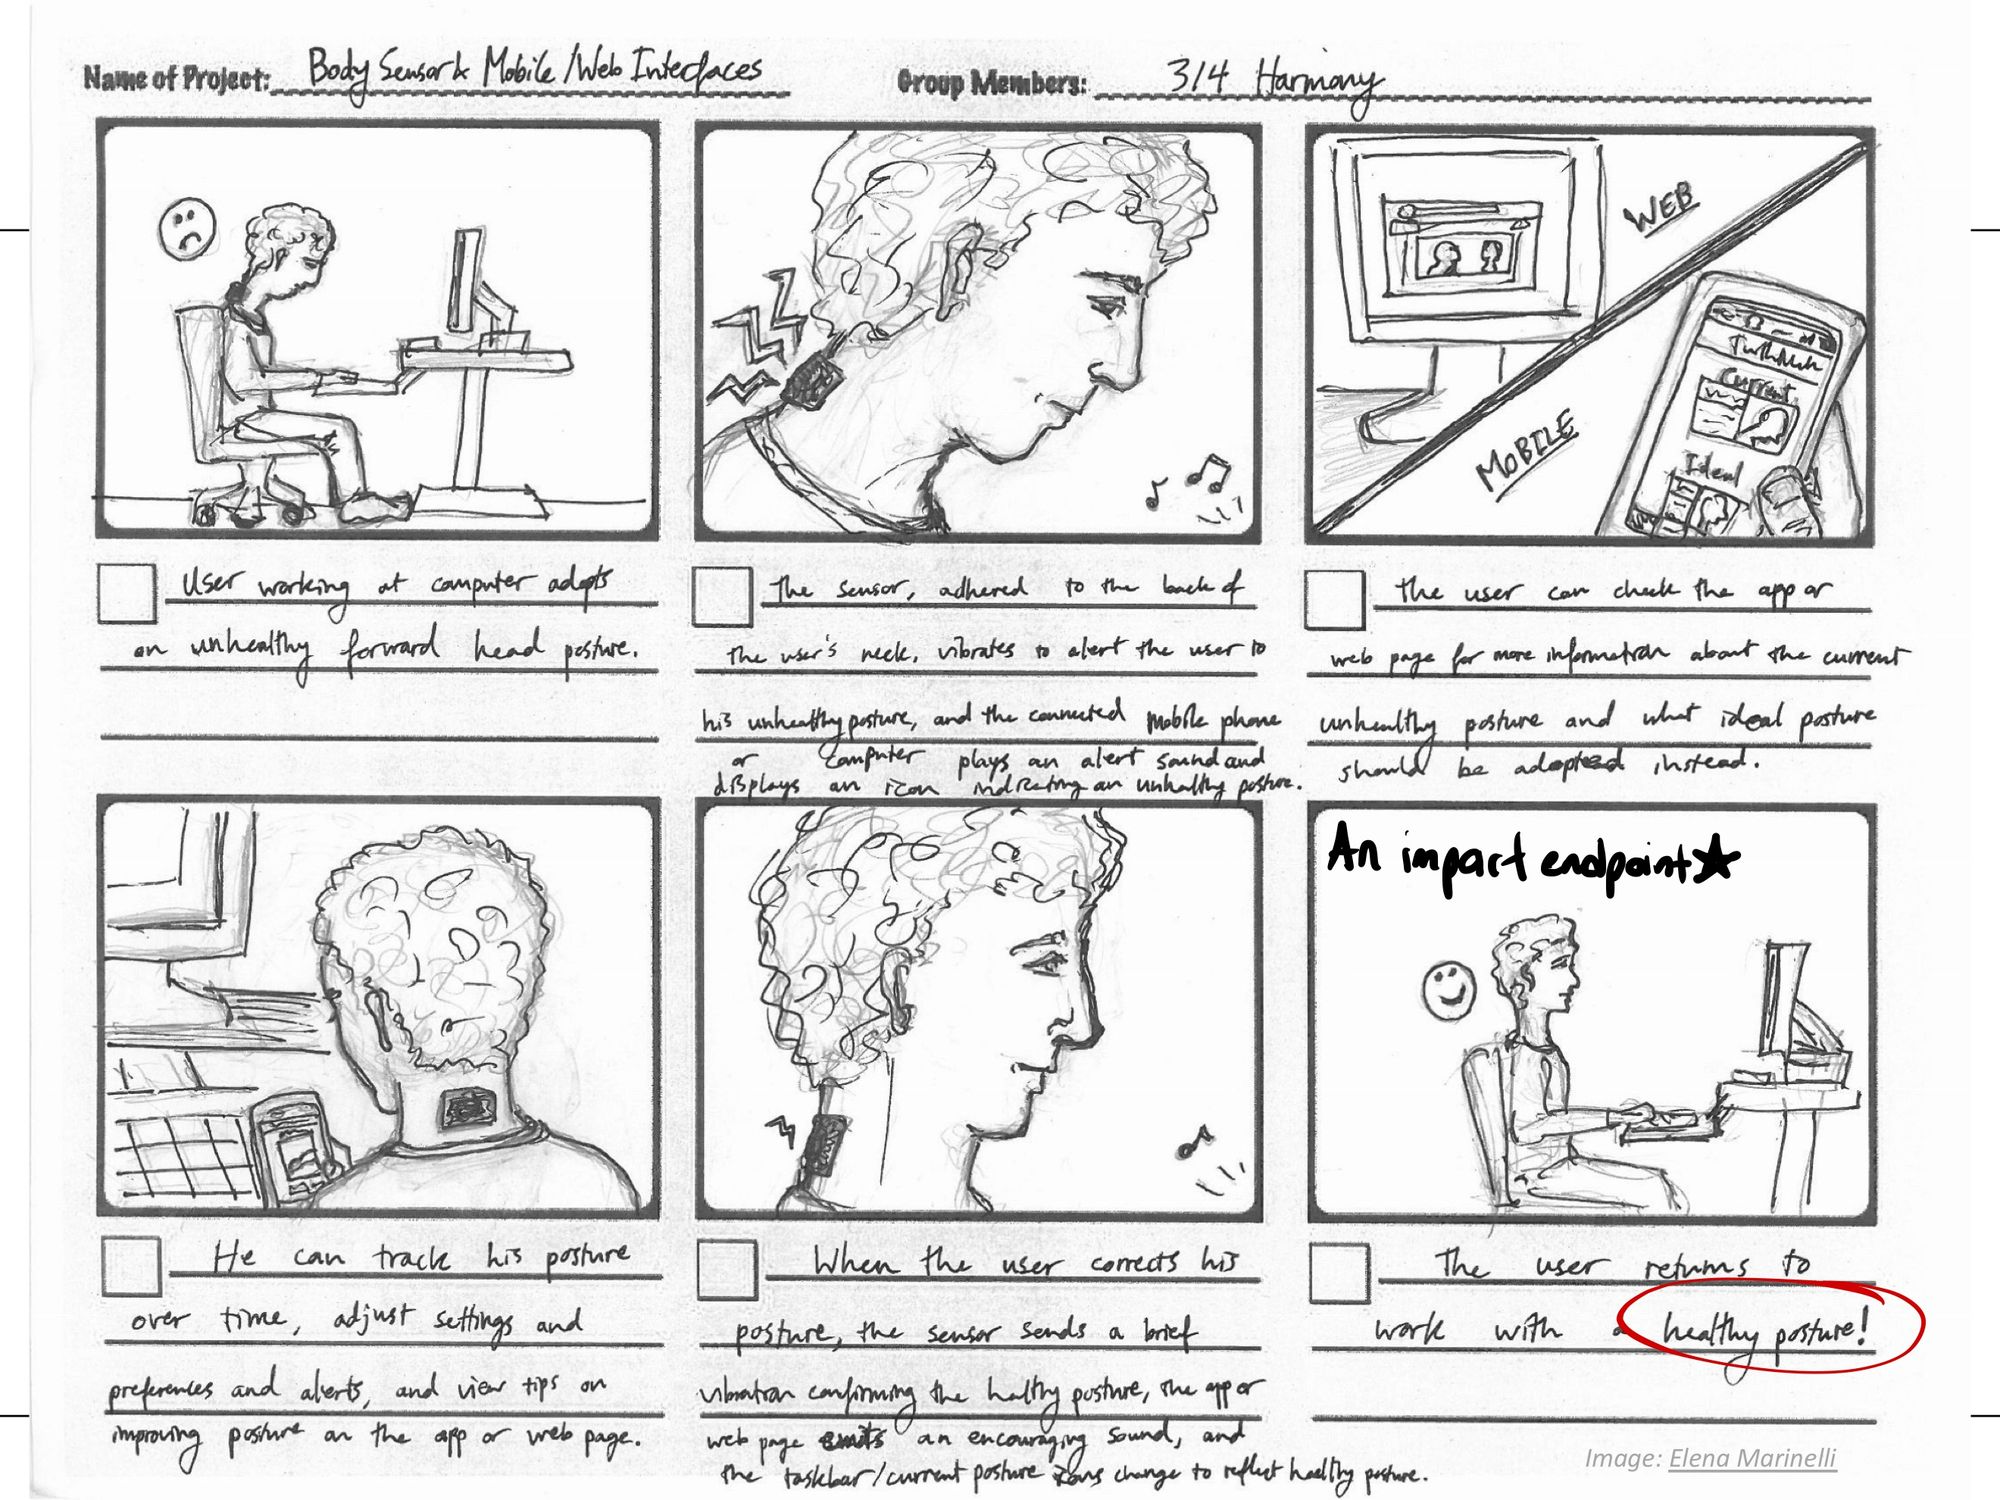 Name of Project: Body Sensor & Mobile/Web Interfaces
Group Members: 3/4 Harmony
WEB
MOBILE
Current
Ideal
User working at computer adopts
an unhealthy forward head posture.
The sensor, adhered to the back of
the user's neck, vibrates to alert the user to
his unhealthy posture, and the connected mobile phone
or computer plays an alert sound and
displays an icon indicating an unhealthy posture.
The user can check the app or
web page for more information about the current
unhealthy posture and what ideal posture
should be adopted instead.
An impact endpoint
He can track his posture
over time, adjust settings and
preferences and alerts, and view tips on
improving posture on the app or web page.
When the user corrects his
posture, the sensor sends a brief
vibration confirming the healthy posture, the app or
web page emits an encouraging sound, and
the taskbar/current posture icons change to reflect healthy posture.
The user returns to
work with a healthy posture!
Image: Elena Marinelli